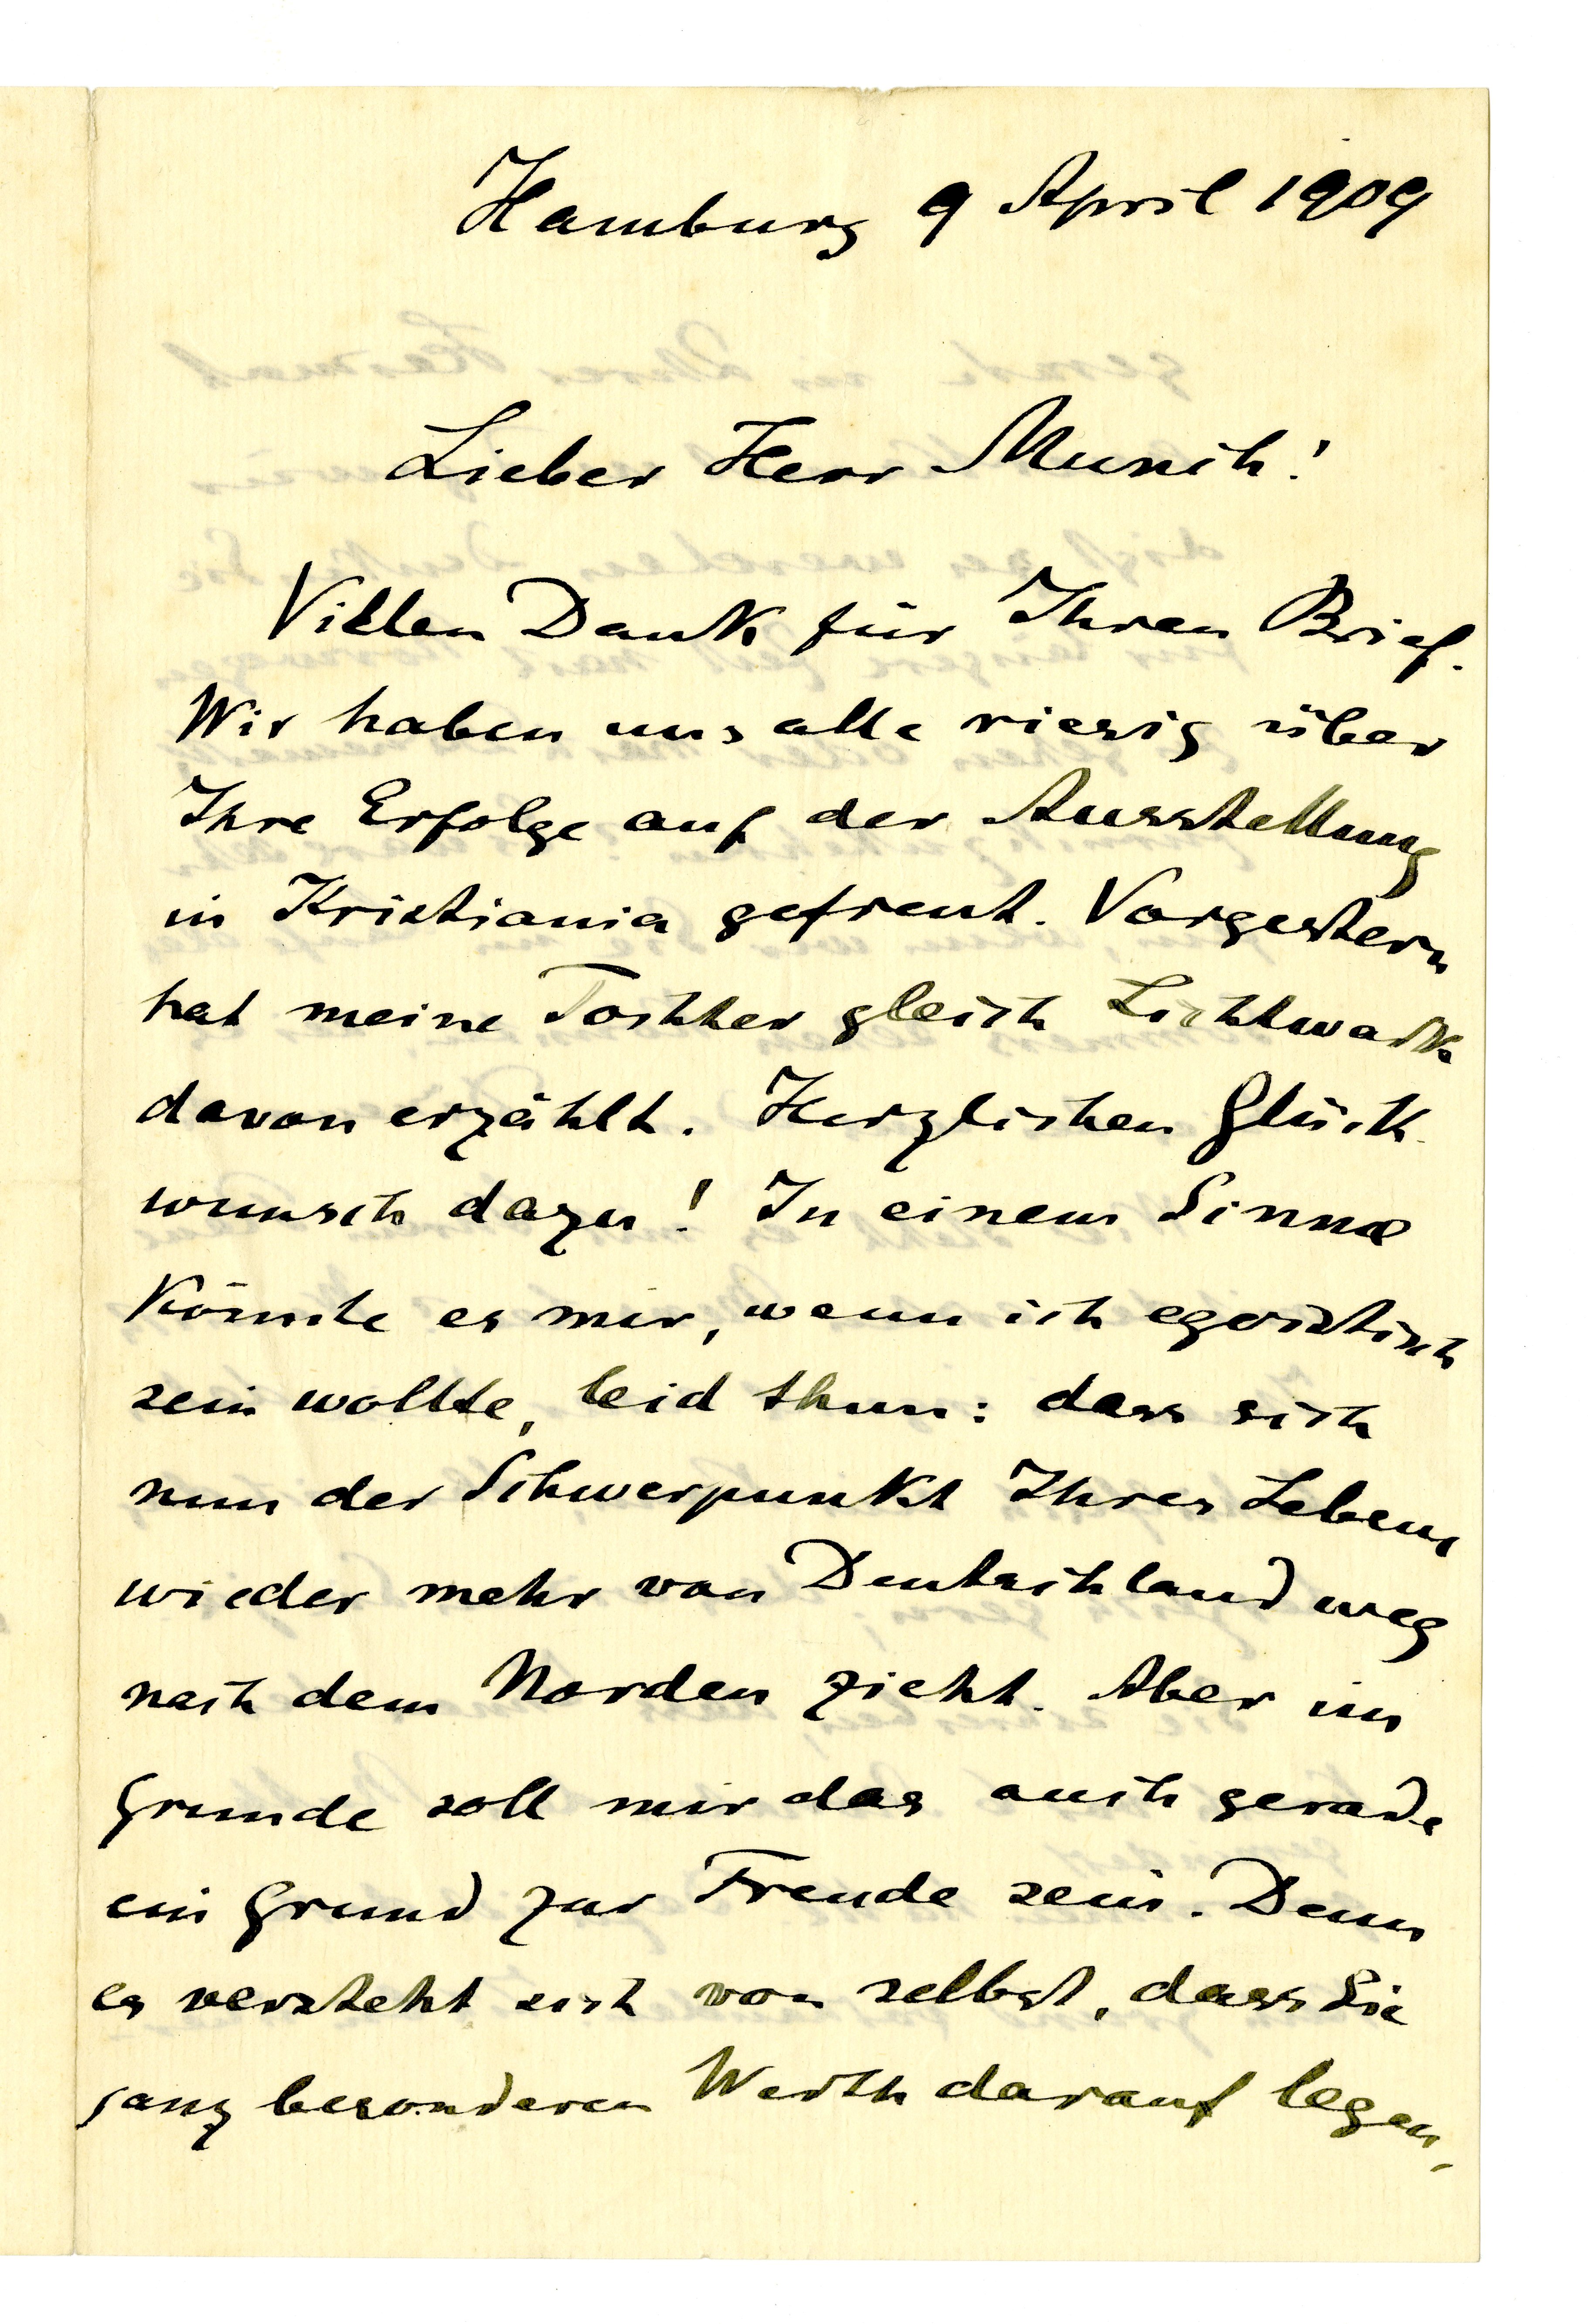 Hamburg 9 April 1909
Lieber Herr Munch!
Vielen Dank für Ihren Brief.
Wir haben uns alle riesig über
Ihre Erfolge auf der Ausstellung
in Kristiania gefreut. Vorgestern
hat meine Tochter gleich Lichtwark
davon erzählt. Herzlichen Glück-
wunsch dazu! In einem Sinne
könnte es mir, wenn ich egoistisch
sein wollte, leid thun: dass sich
nun der Schwerpunkt Ihres Lebens
wieder mehr von Deutschland weg
nach dem Norden zieht. Aber im
Grunde soll mir das auch gerade
ein Grund zur Freude sein. Denn
es versteht sich von selbst, dass Sie
ganz besonderen Werth darauf legen,